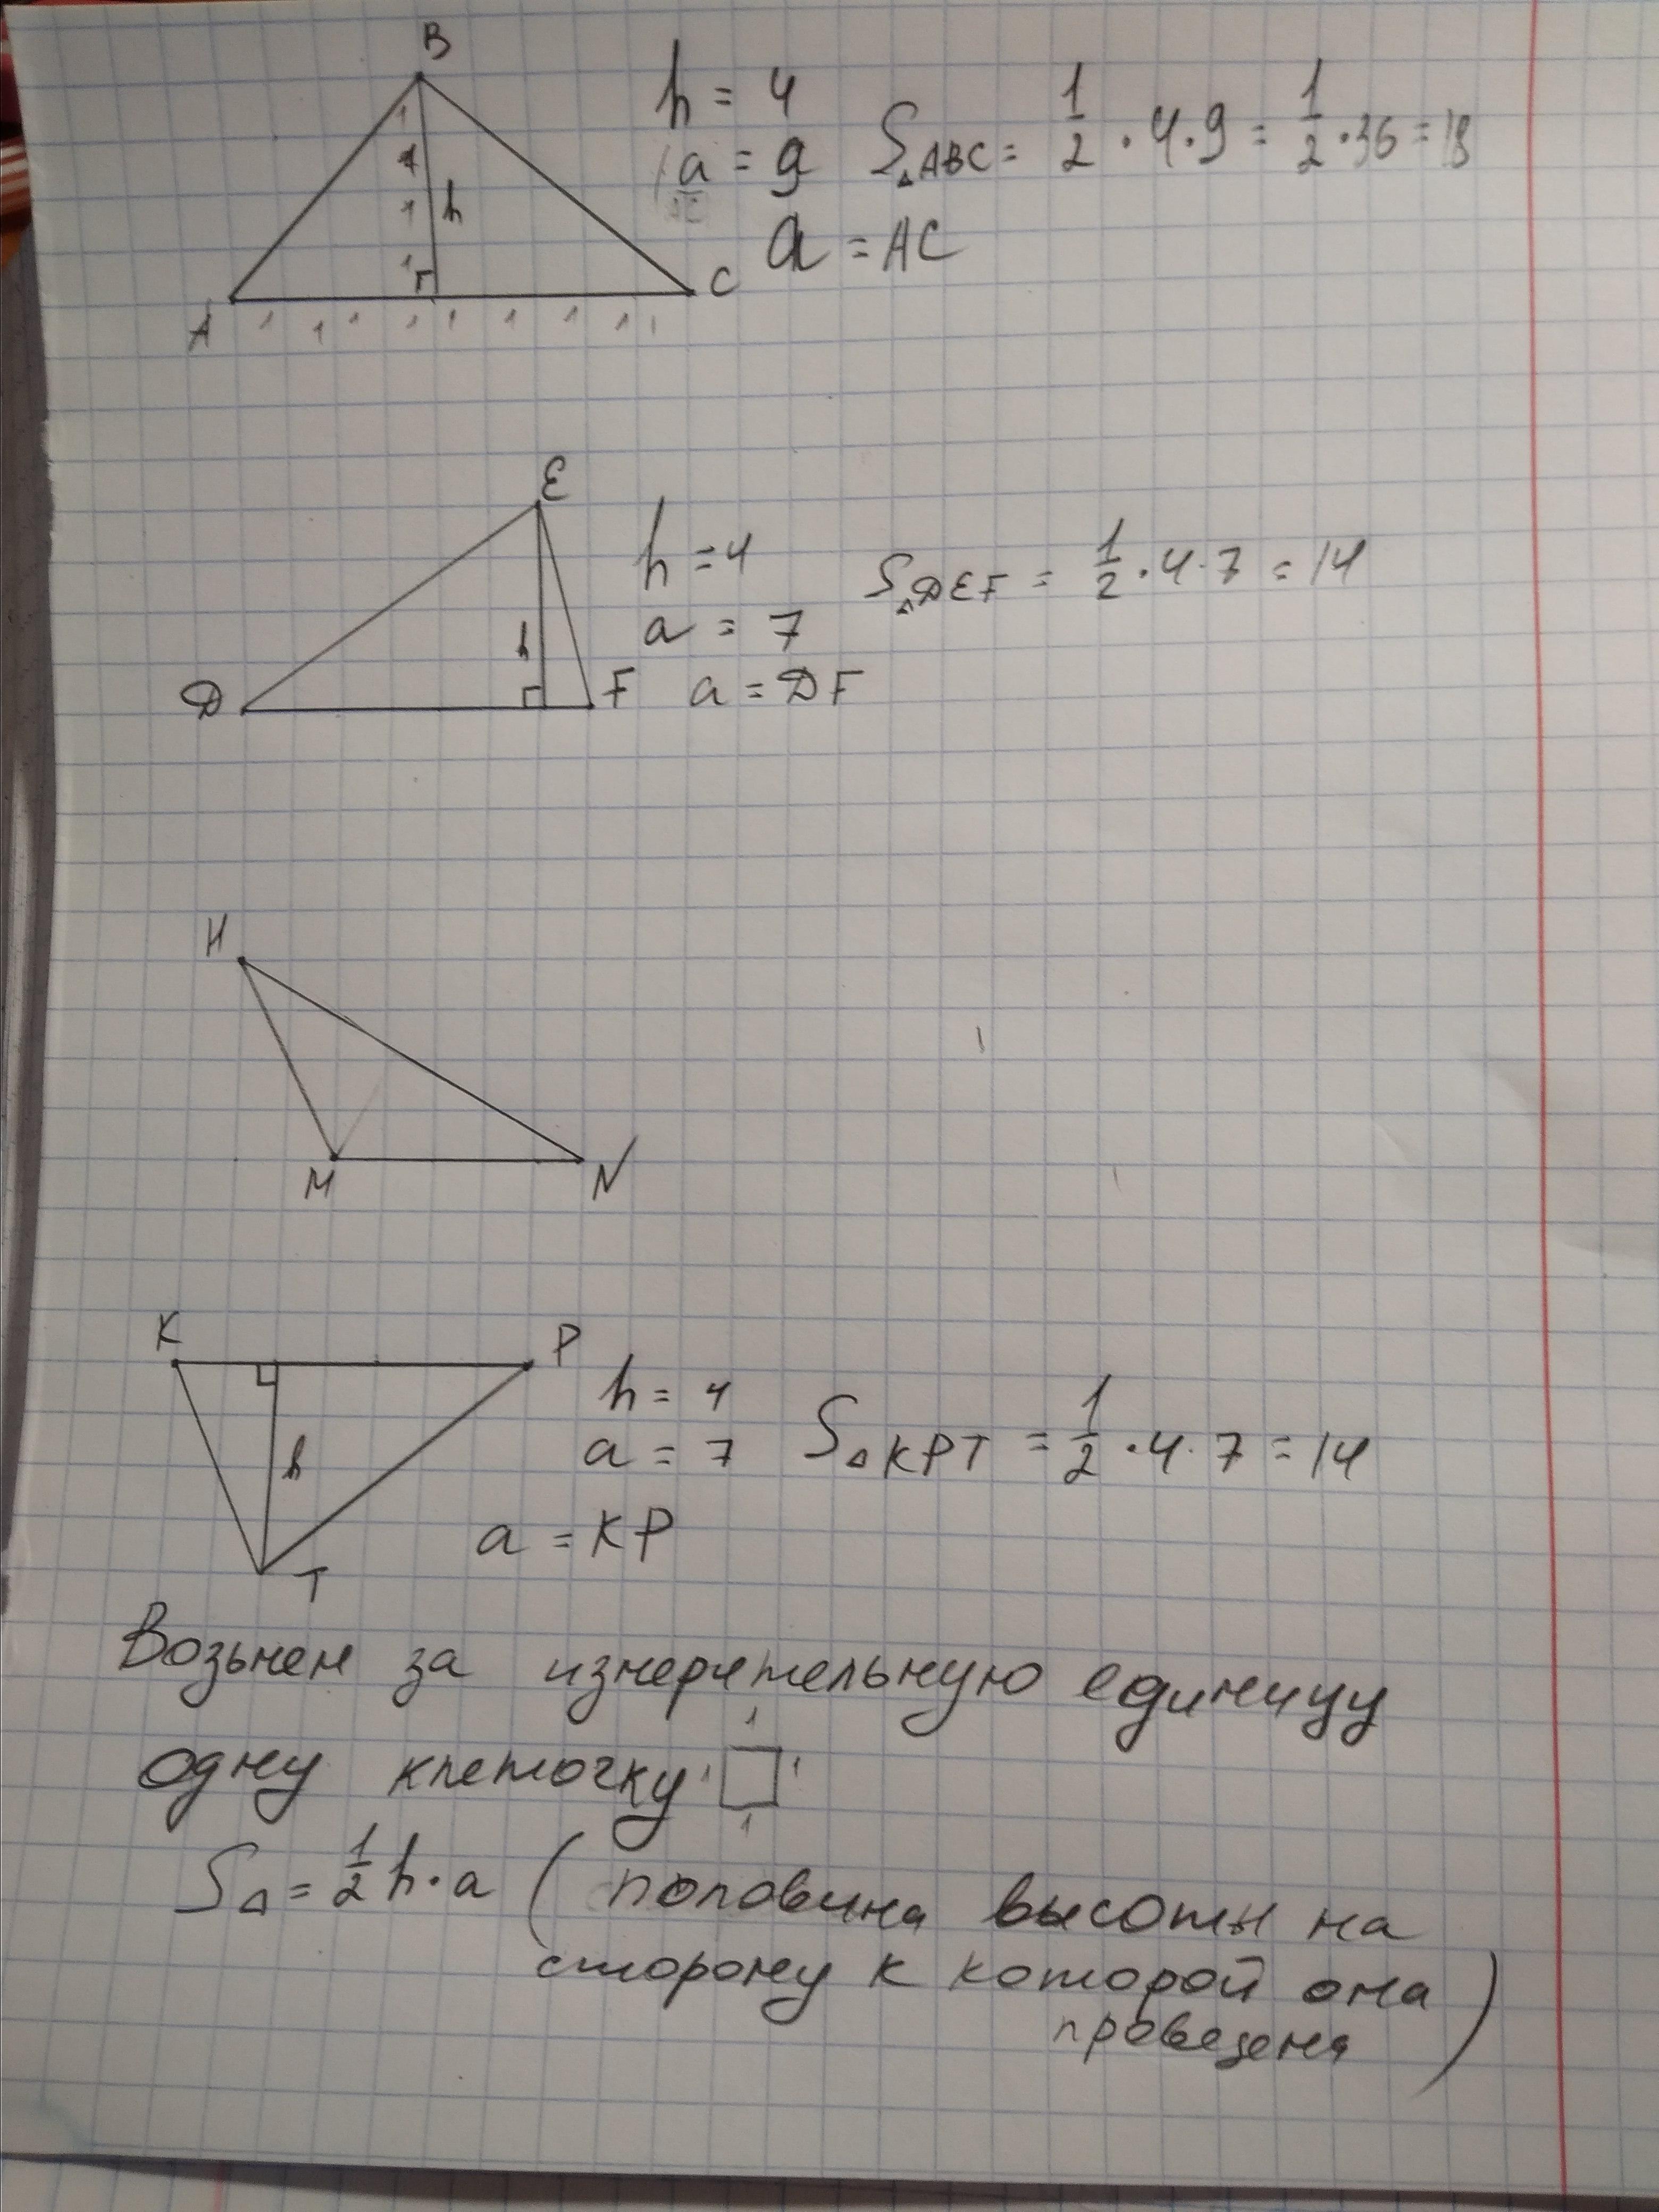 B
h = 4
a = 9
S△ABC = 1/2 · 4 · 9 = 1/2 · 36 = 18
a = AC
1
1
1
1
h
A
C
1 1 1 1 1 1 1 1 1
E
h = 4
S△DEF = 1/2 · 4 · 7 = 14
a = 7
h
D
F
a = DF
H
M
N
K
P
h = 4
a = 7
S△KPT = 1/2 · 4 · 7 = 14
h
a = KP
T
Возьмем за измерительную единицу
одну клеточку 1 1 1 1
S△ = 1/2 h · a ( половина высоты на
сторону к которой она
проведена )